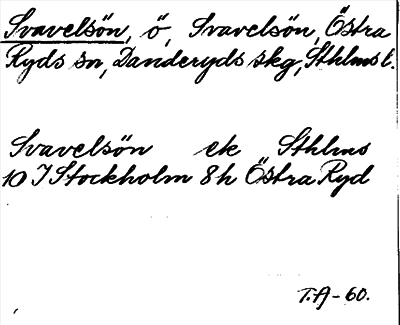 Svavelsön, ö, Svavelsön, Östra
Ryds sn, Danderyds skg, Sthlms l.
Svavelsön ek Sthlms
10 I Stockholm 8h Östra Ryd
T.A-60.